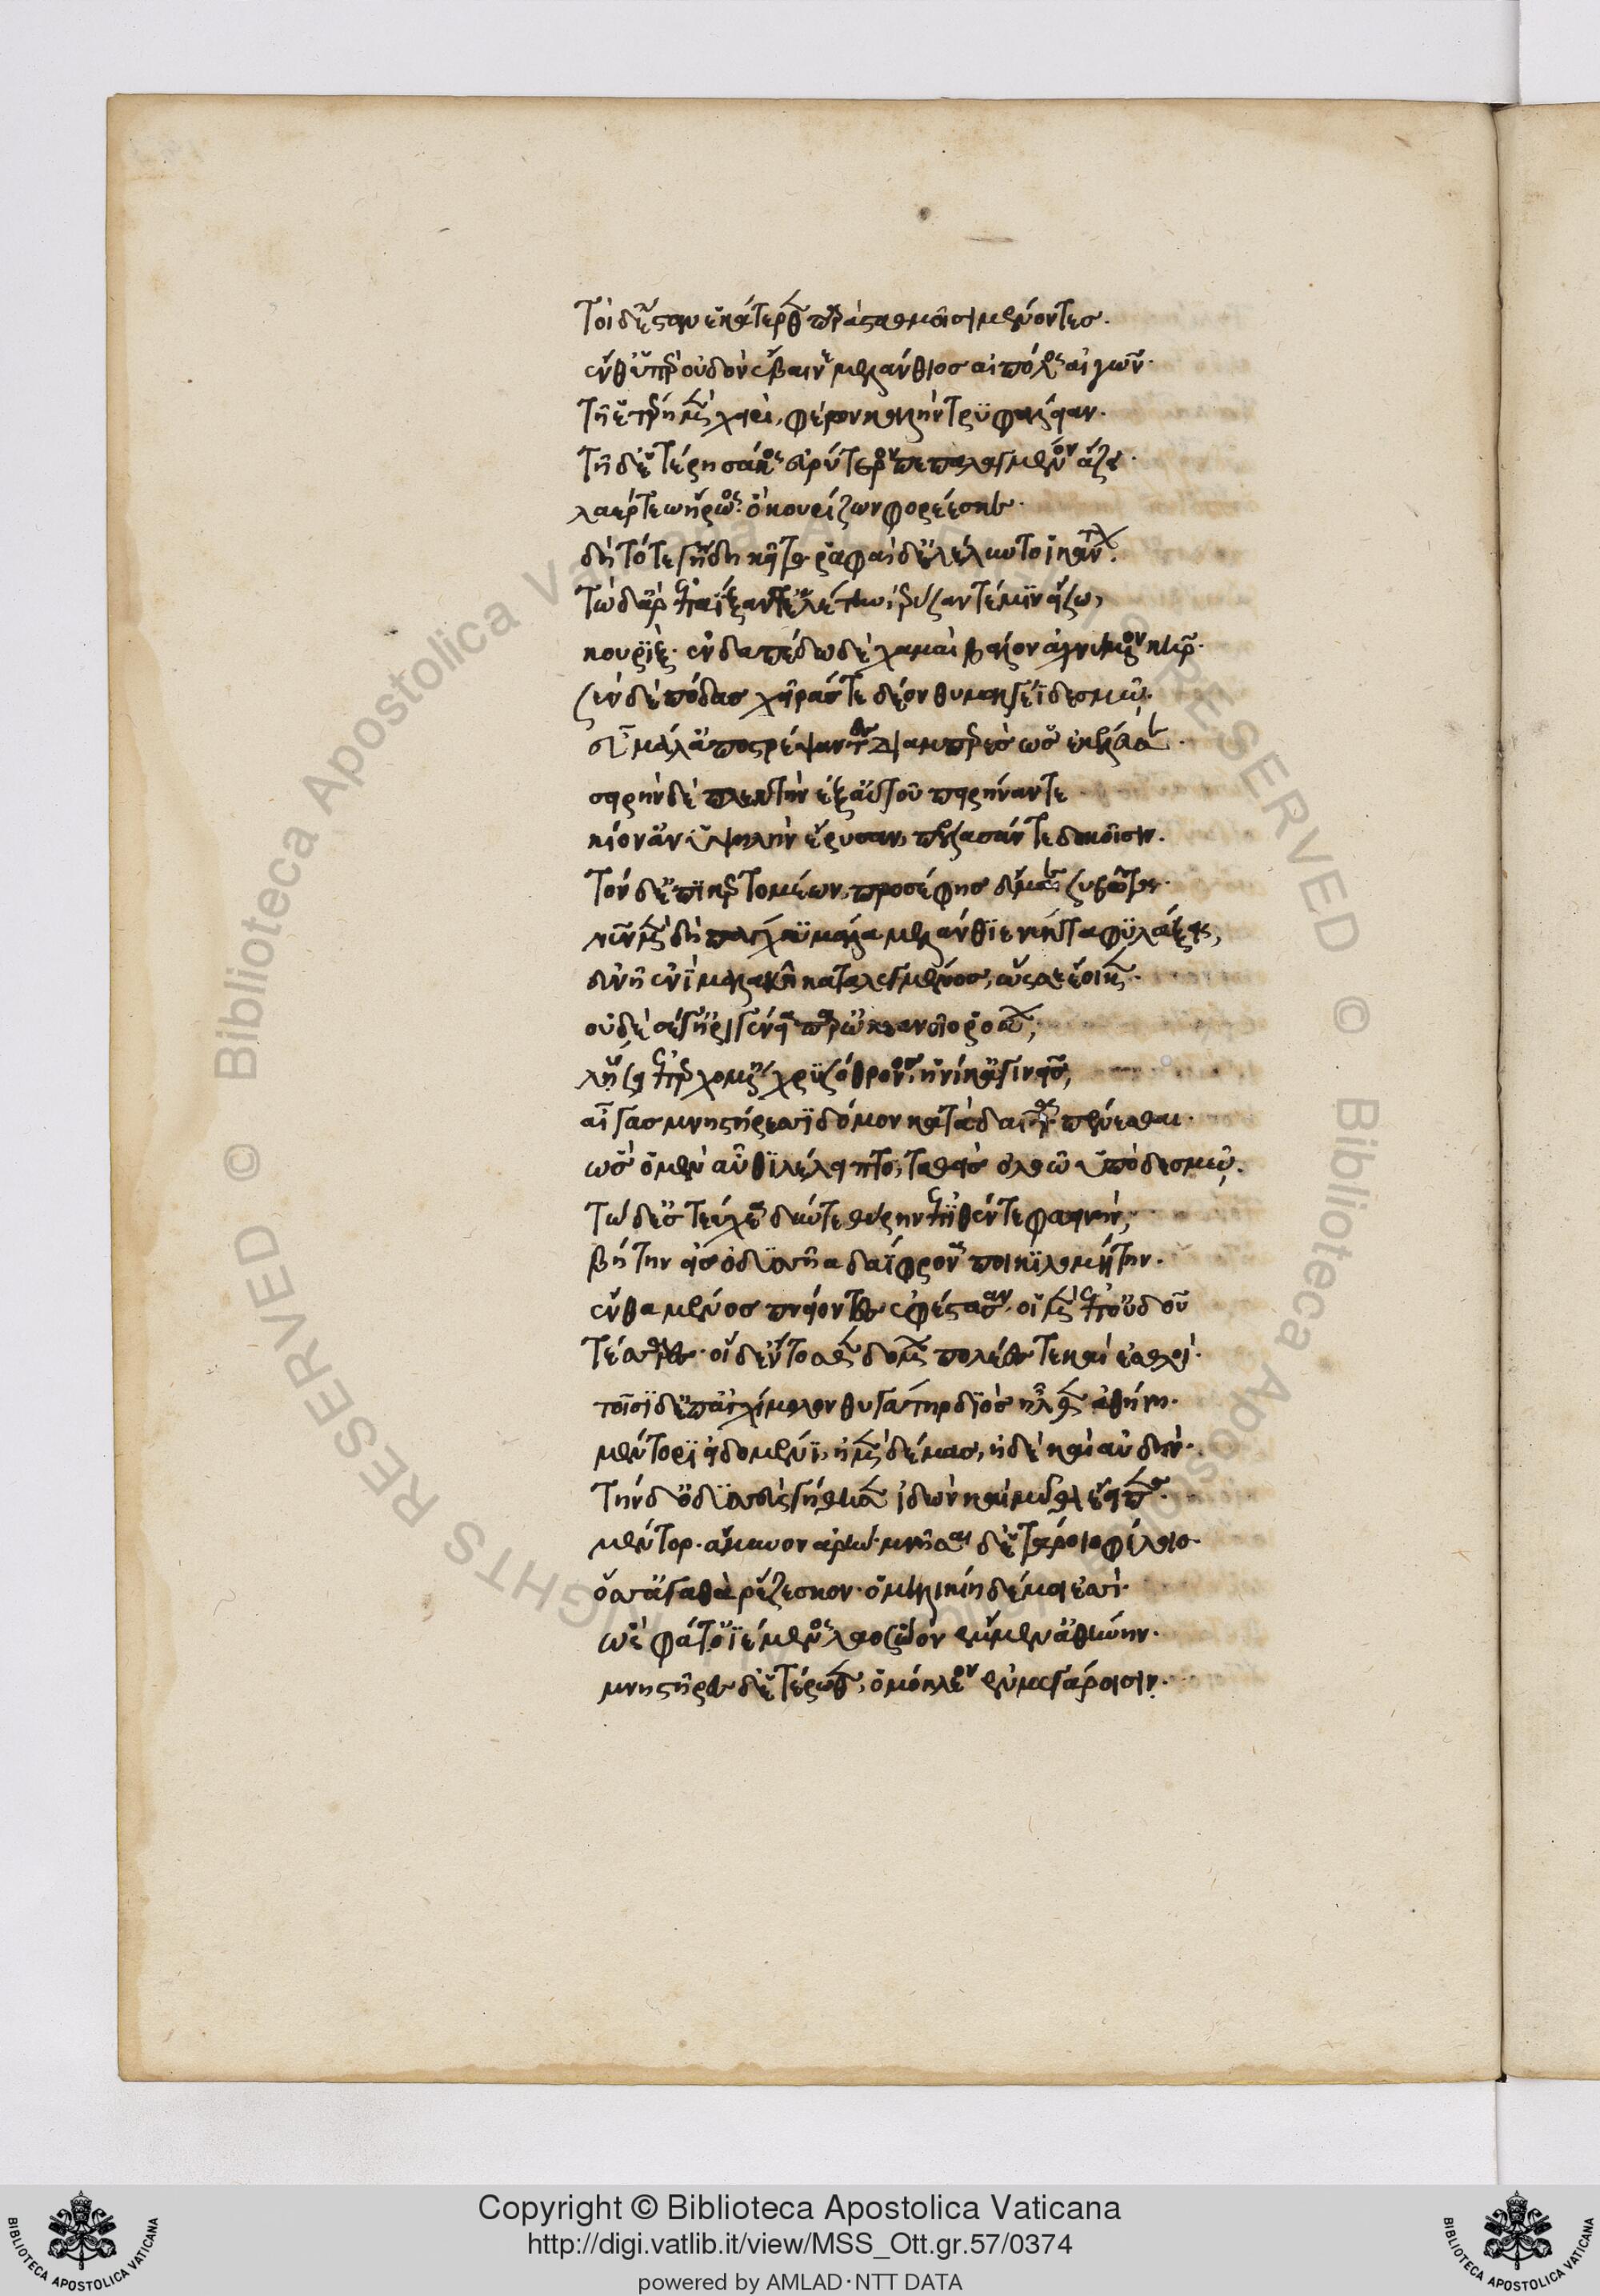 τοὶ δ' ἔσταν ἑκάτερθε παρὰ σταθμοῖσι μένοντες.
εὖθ' ὑπὲρ οὐδὸν ἔβαινε μελάνθιος αἰπόλος αἰγῶν.
τῇ ἑτέρῃ μὲν χειρὶ, φέρων καλὴν τρυφάλειαν.
τῇ δ' ἑτέρῃ σάκος εὐρὺ γέρον πεπαλαγμένον ἄζη.
λαέρτεω ἥρωος. ὃ κουρίζων φορέεσκε.
δὴ τότε γ' ἤδη κεῖτο. ῥαφαὶ δ' ἐλέλυντο ἱμάντων.
τὼ δ' ἄρ' ἐπαΐξανθ' ἑλέτην, ἔρυσάν τέ μιν εἴσω,
κουρίξ. ἐν δαπέδω δὲ χαμαὶ βάλον ἀχνύμενον κῆρ.
σὺν δὲ πόδας χεῖράς τε δέον θυμαλγέϊ δεσμῷ.
εὖ μάλ' ἀποστρέψαντε διαμπερὲς ὡς ἐκέλευσε.
σειρὴν δὲ πλεκτὴν ἐξ αὐτοῦ πειρήναντε
κίον' ἀν' ὑψηλὴν ἔρυσαν, πέλασάν τε δοκοῖσιν.
τὸν δ' ἐπικερτομέων, προσέφης εὔμαιε συβῶτα.
νῦν μὲν δὴ πάγχυ μάλα μελάνθιε νύκτα φυλάξεις,
εὐνῇ ἐνὶ μαλακῇ καταλέγμενος, ὥς σε ἔοικεν.
οὐδὲ σέ γ' ἠριγένεια παρ' ὠκεανοῖο ῥοάων,
λήσει ἐπερχομένη χρυσόθρονος, ἡνίκ' ἀγινεῖς,
αἶγας μνηστήρεσσι δόμον κάτα δαῖτα πένεσθαι.
ὣς ὁ μὲν αὖθι λέλειπτο, ταθεὶς ὀλοῷ ὑπὸ δεσμῷ.
τὼ δ' ἐς τεύχεα δύντε θύρην ἐπιθέντε φαεινὴν,
βήτην εἰς ὀδυσῆα δαΐφρονα ποικιλομήτην.
ἔνθα μένος πνείοντες ἐφέστασαν. οἱ μὲν ἐπ' οὐδοῦ
τέσσαρες. οἱ δ' ἔντοσθε δόμων πολέες τε καὶ ἐσθλοί.
τοῖσι δ' ἐπ' ἀγχίμολον θυγάτηρ διὸς ἦλθεν ἀθήνη.
μέντορι εἰδομένη, ἠμὲν δέμας, ἠδὲ καὶ αὐδήν.
τὴν δ' ὀδυσεὺς γήθησεν ἰδὼν καὶ μῦθον ἔειπεν.
μέντορ. ἄμυνον ἀρήν. μνῆσαι δ' ἑτάροιο φίλοιο.
ὅς σ' ἀγαθὰ ῥέζεσκον. ὁμηλικίη δέ μοι ἐσσί.
ὣς φάτ' ὀϊόμενος λαοσσόον ἔμμεν' ἀθήνην.
μνηστῆρες δ' ἑτέρωθεν, ὁμόκλεον ἐν μεγάροισιν.
Copyright © Biblioteca Apostolica Vaticana
http://digi.vatlib.it/view/MSS_Ott.gr.57/0374
powered by AMLAD·NTT DATA